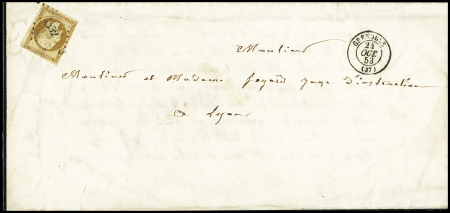 GRENOBLE
24
OCT
53
(37)
Monsieur
Monsieur et Madame Fayard Juge d'instruction
à Lyon